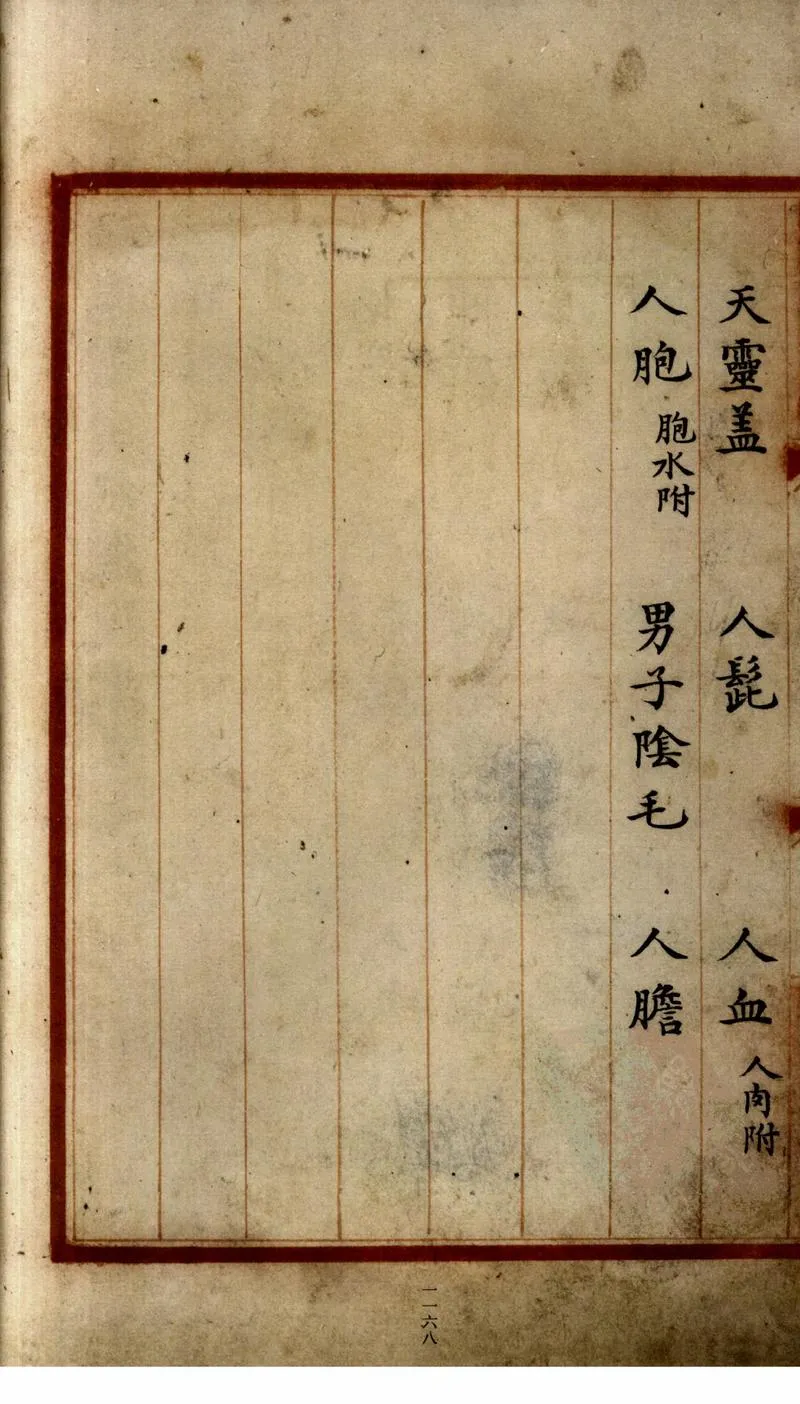 天靈盖 人髭 人血 人肉附
人胞 胞水附 男子陰毛 人膽
一一六八